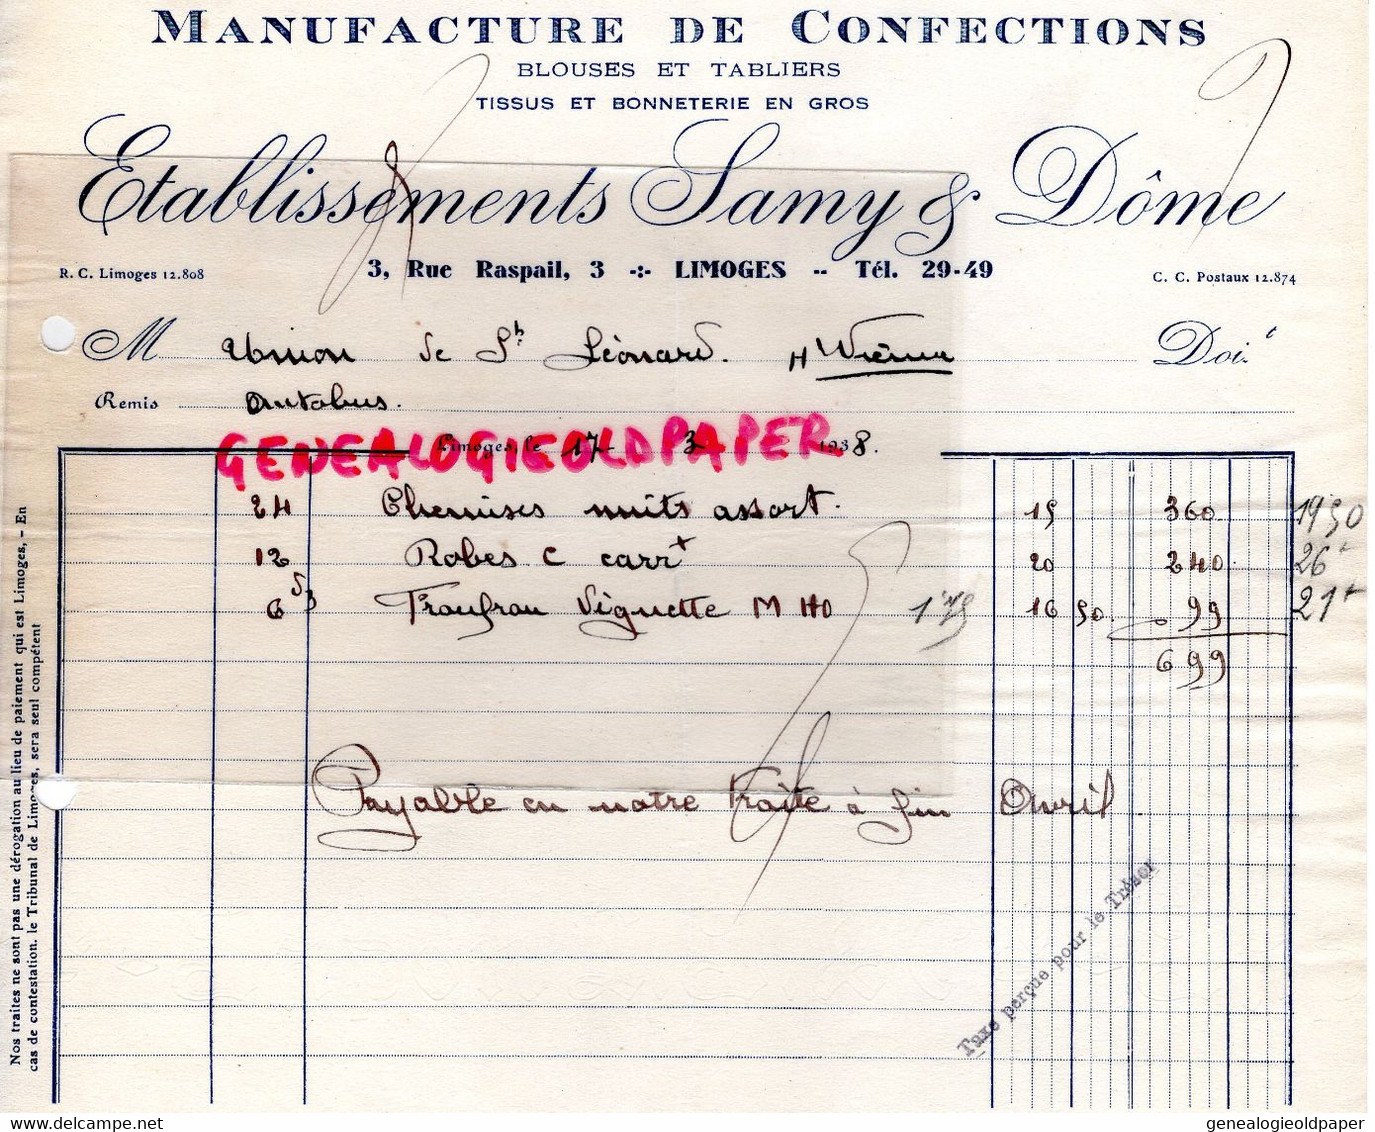 MANUFACTURE DE CONFECTIONS
BLOUSES ET TABLIERS
TISSUS ET BONNETERIE EN GROS
Etablissements Samy & Dôme
R. C. Limoges 12.808
3, Rue Raspail, 3 -:- LIMOGES -- Tél. 29-49
C. C. Postaux 12.874
M Union de St Léonard. Hte Vienne Doit
Remis Autobus.
GENEALOGIEOLDPAPER
Limoges, le 17 3 1938.
24 Chemises nuits assort. 15 360 19 50
12 Robes c carr 20 240 26
6 Froufrou Vignette M 110 1.75 16 50 99 21
699
Payable en notre traite à fin Avril
Taxe perçue pour le Trésor
Nos traites ne sont pas une dérogation au lieu de paiement qui est Limoges, - En
cas de contestation, le Tribunal de Limoges, sera seul compétent
genealogieoldpaper